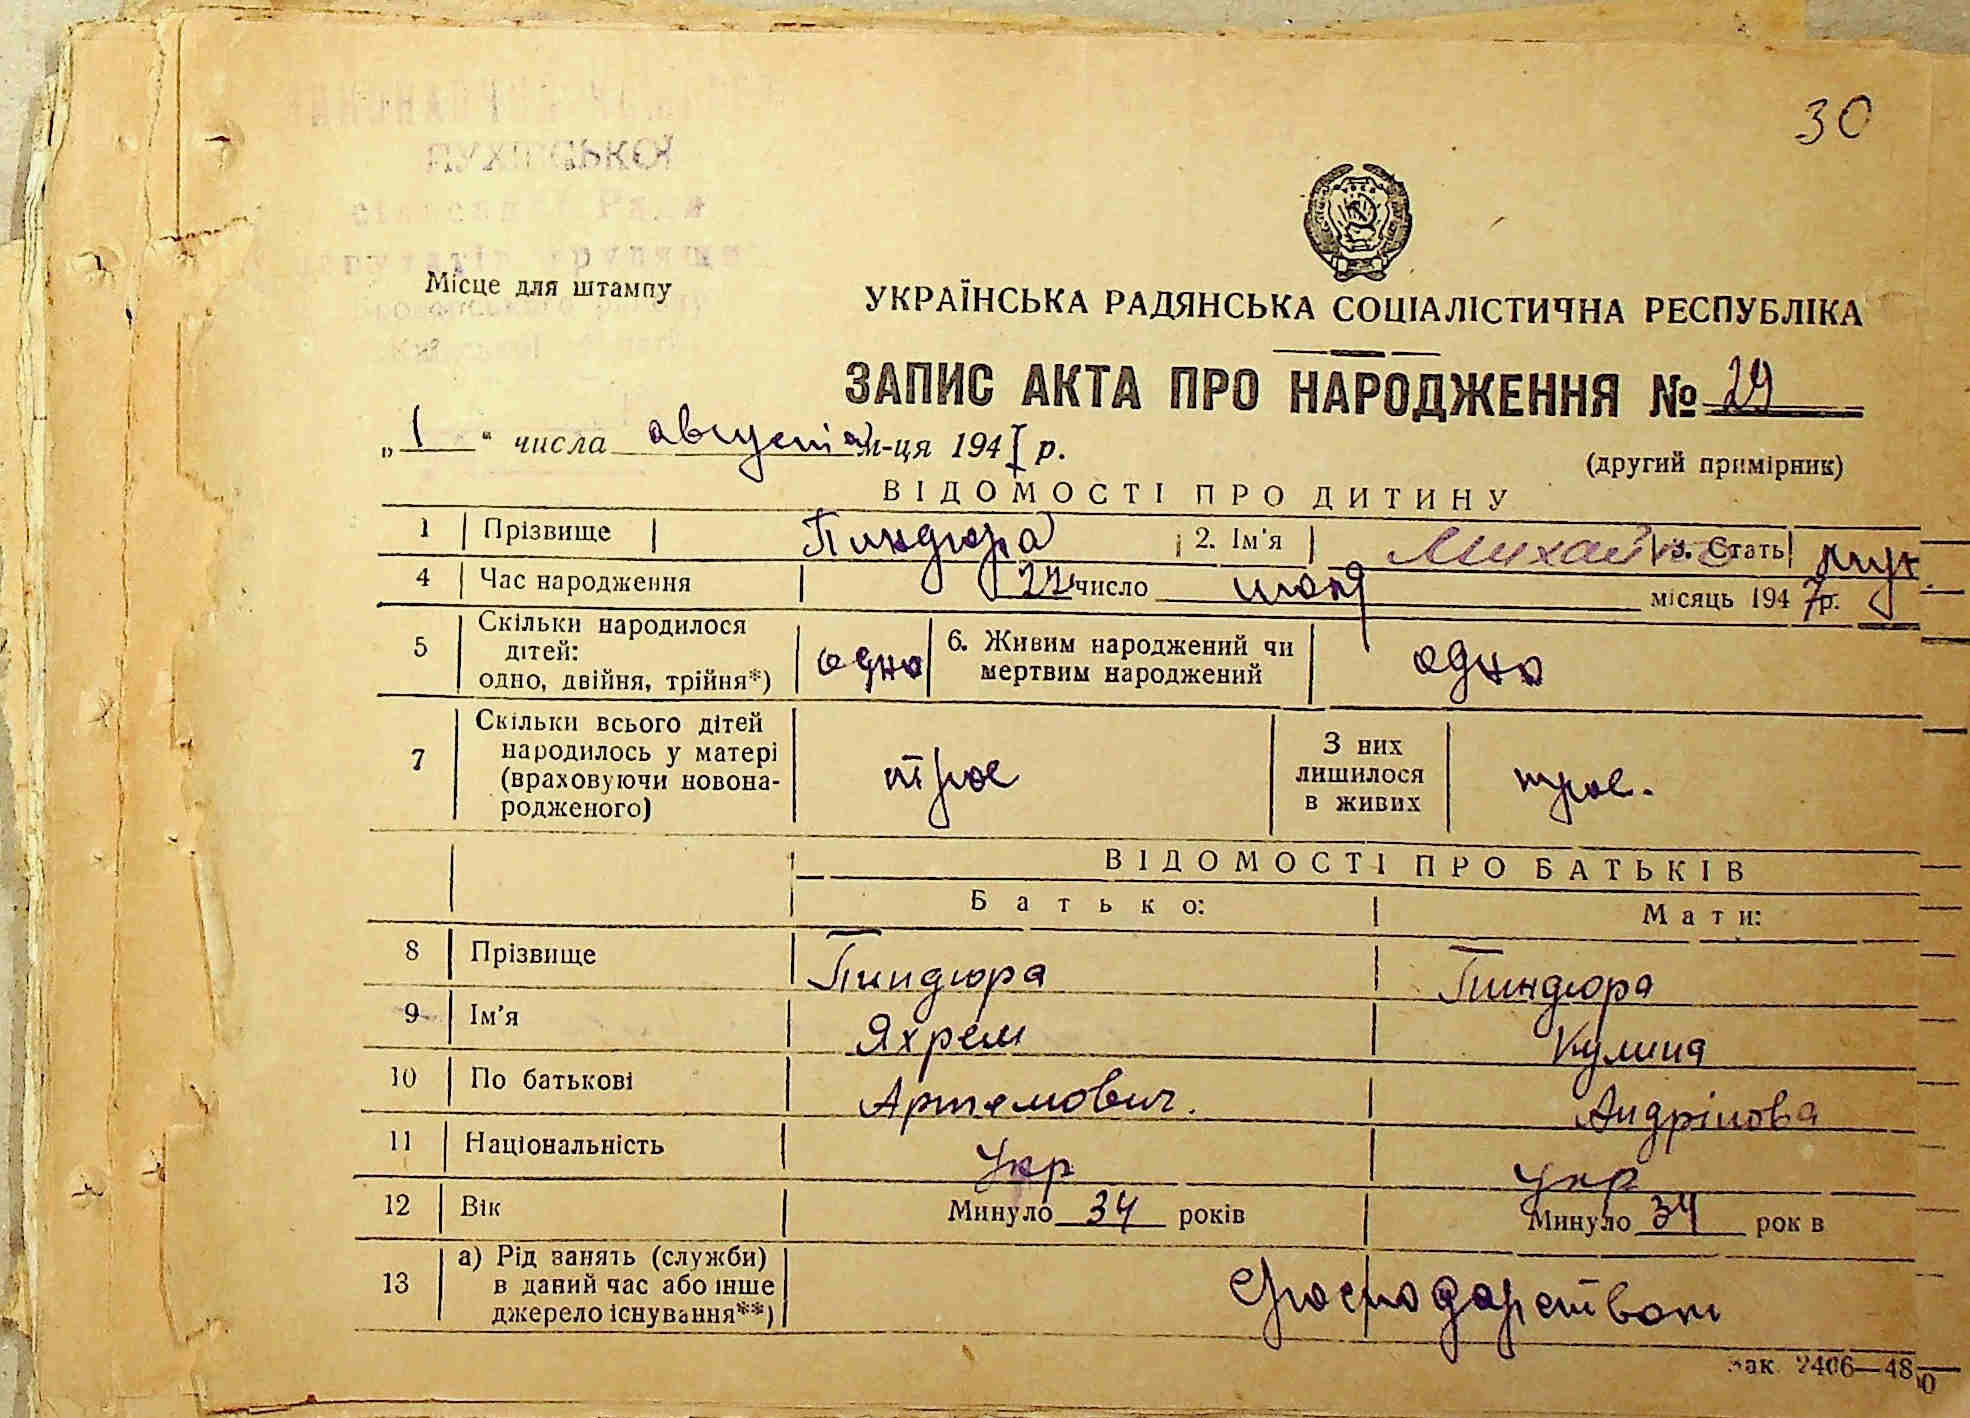 30
ПУХІВСЬКОЇ
Місце для штампу
УКРАЇНСЬКА РАДЯНСЬКА СОЦІАЛІСТИЧНА РЕСПУБЛІКА
ЗАПИС АКТА ПРО НАРОДЖЕННЯ № 29
„ 1 " числа августа м-ця 1947 р.
(другий примірник)
ВІДОМОСТІ ПРО ДИТИНУ
1 Прізвище Пиндюра 2. Ім'я Михайло 3. Стать муж
4 Час народження число июля місяць 1947 р.
5 Скільки народилося дітей: одно, двійня, трійня*) одно 6. Живим народжений чи мертвим народжений одно
7 Скільки всього дітей народилось у матері (враховуючи новонародженого) трое З них лишилося в живих трое.
ВІДОМОСТІ ПРО БАТЬКІВ
Батько: Мати:
8 Прізвище Пиндюра Пиндюра
9 Ім'я Яхрем Кулина
10 По батькові Артемович. Андріїова
11 Національність Укр Укр
12 Вік Минуло 34 років Минуло 34 рок в
13 а) Рід занять (служби) в даний час або інше джерело існування**)
Зак. 2406—48